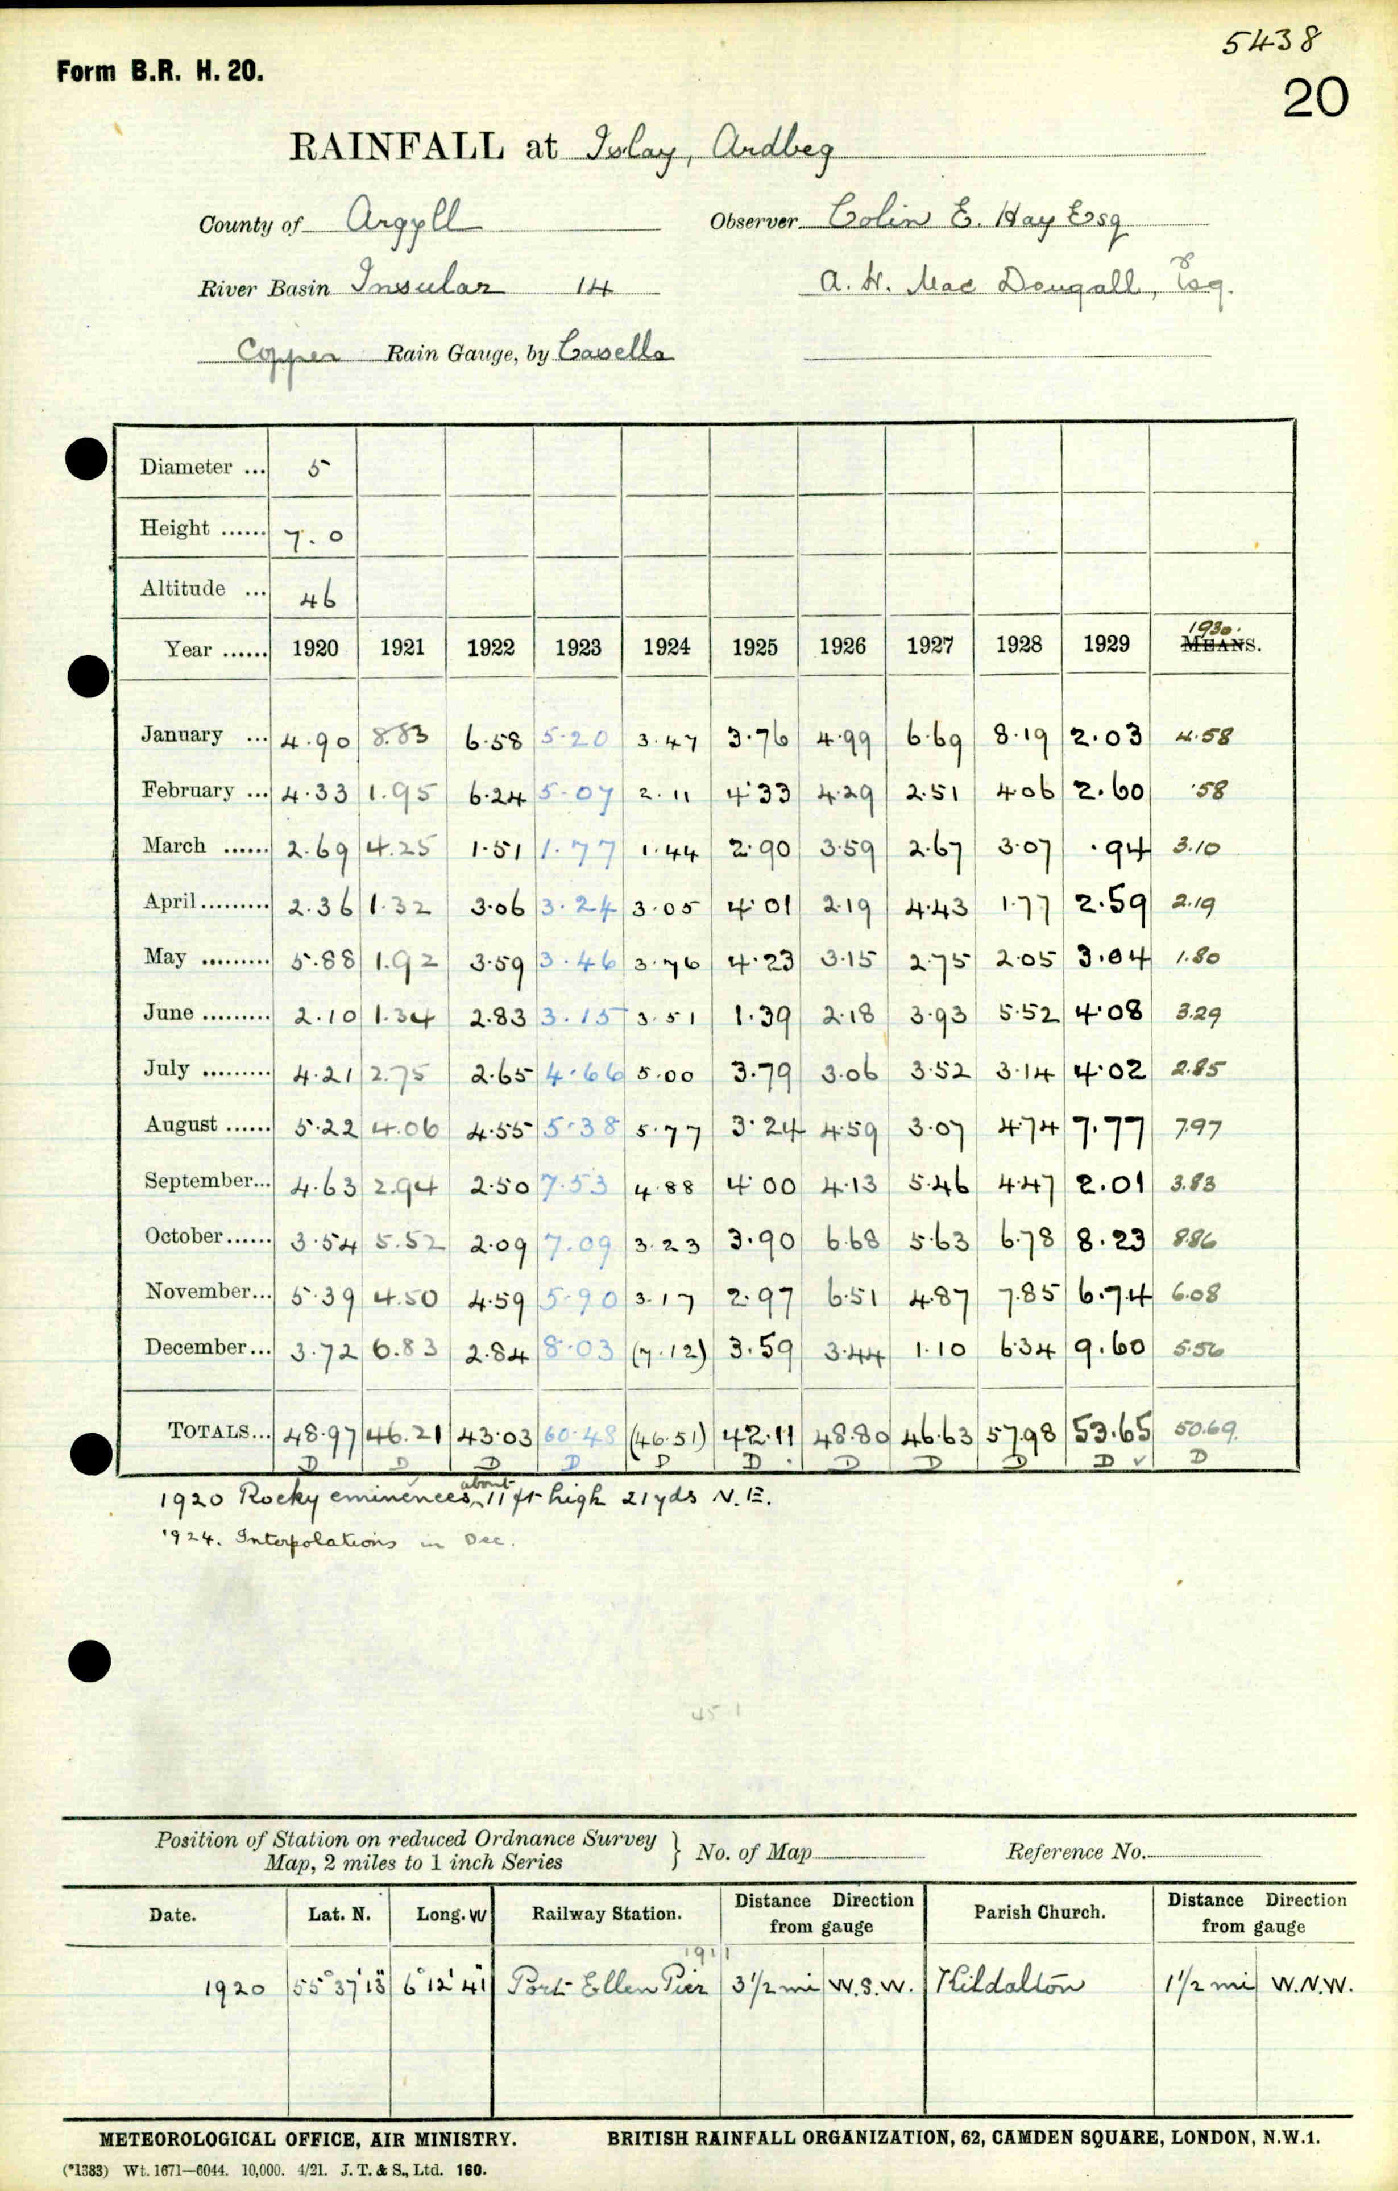 5438
Form B.R. H. 20.
20
RAINFALL at Islay, Ardbeg
County of Argyll Observer Colin E. Hay Esq
River Basin Insular 14 A. H. Mac Dougall, Esq.
Copper Rain Gauge, by Casella
Diameter ... 5
Height ...... 7.0
Altitude ... 46
1930.
Year ...... 1920 1921 1922 1923 1924 1925 1926 1927 1928 1929 MEANS.
January ... 4.90 8.83 6.58 5.20 3.47 3.76 4.99 6.69 8.19 2.03 4.58
February ... 4.33 1.95 6.24 5.07 2.11 4.33 4.29 2.51 4.06 2.60 .58
March ...... 2.69 4.25 1.51 1.77 1.44 2.90 3.59 2.67 3.07 .94 3.10
April ......... 2.36 1.32 3.06 3.24 3.05 4.01 2.19 4.43 1.77 2.59 2.19
May ......... 5.88 1.92 3.59 3.46 3.76 4.23 3.15 2.75 2.05 3.04 1.80
June ......... 2.10 1.34 2.83 3.15 3.51 1.39 2.18 3.93 5.52 4.08 3.29
July ......... 4.21 2.75 2.65 4.66 5.00 3.79 3.06 3.52 3.14 4.02 2.85
August ...... 5.22 4.06 4.55 5.38 5.77 3.24 4.59 3.07 4.74 7.77 7.97
September... 4.63 2.94 2.50 7.53 4.88 4.00 4.13 5.46 4.47 2.01 3.83
October ...... 3.54 5.52 2.09 7.09 3.23 3.90 6.68 5.63 6.78 8.23 8.86
November... 5.39 4.50 4.59 5.90 3.17 2.97 6.51 4.87 7.85 6.74 6.08
December... 3.72 6.83 2.84 8.03 (7.12) 3.59 3.44 1.10 6.34 9.60 5.56
TOTALS... 48.97 46.21 43.03 60.48 (46.51) 42.11 48.80 46.63 57.98 53.65 50.69
D D D D D D D D D D ✓ D
1920 Rocky eminences about 11 ft high 21 yds N.E.
1924. Interpolations in Dec.
45 1
Position of Station on reduced Ordnance Survey
Map, 2 miles to 1 inch Series } No. of Map Reference No.
Date. Lat. N. Long. W Railway Station. Distance Direction from gauge Parish Church. Distance Direction from gauge
1911
1920 55° 37' 13" 6° 12' 41" Port Ellen Pier 3 1/2 mi W.S.W. Kildalton 1 1/2 mi W.N.W.
METEOROLOGICAL OFFICE, AIR MINISTRY. BRITISH RAINFALL ORGANIZATION, 62, CAMDEN SQUARE, LONDON, N.W.1.
(*1383) Wt. 1671—6044. 10,000. 4/21. J. T. & S., Ltd. 160.